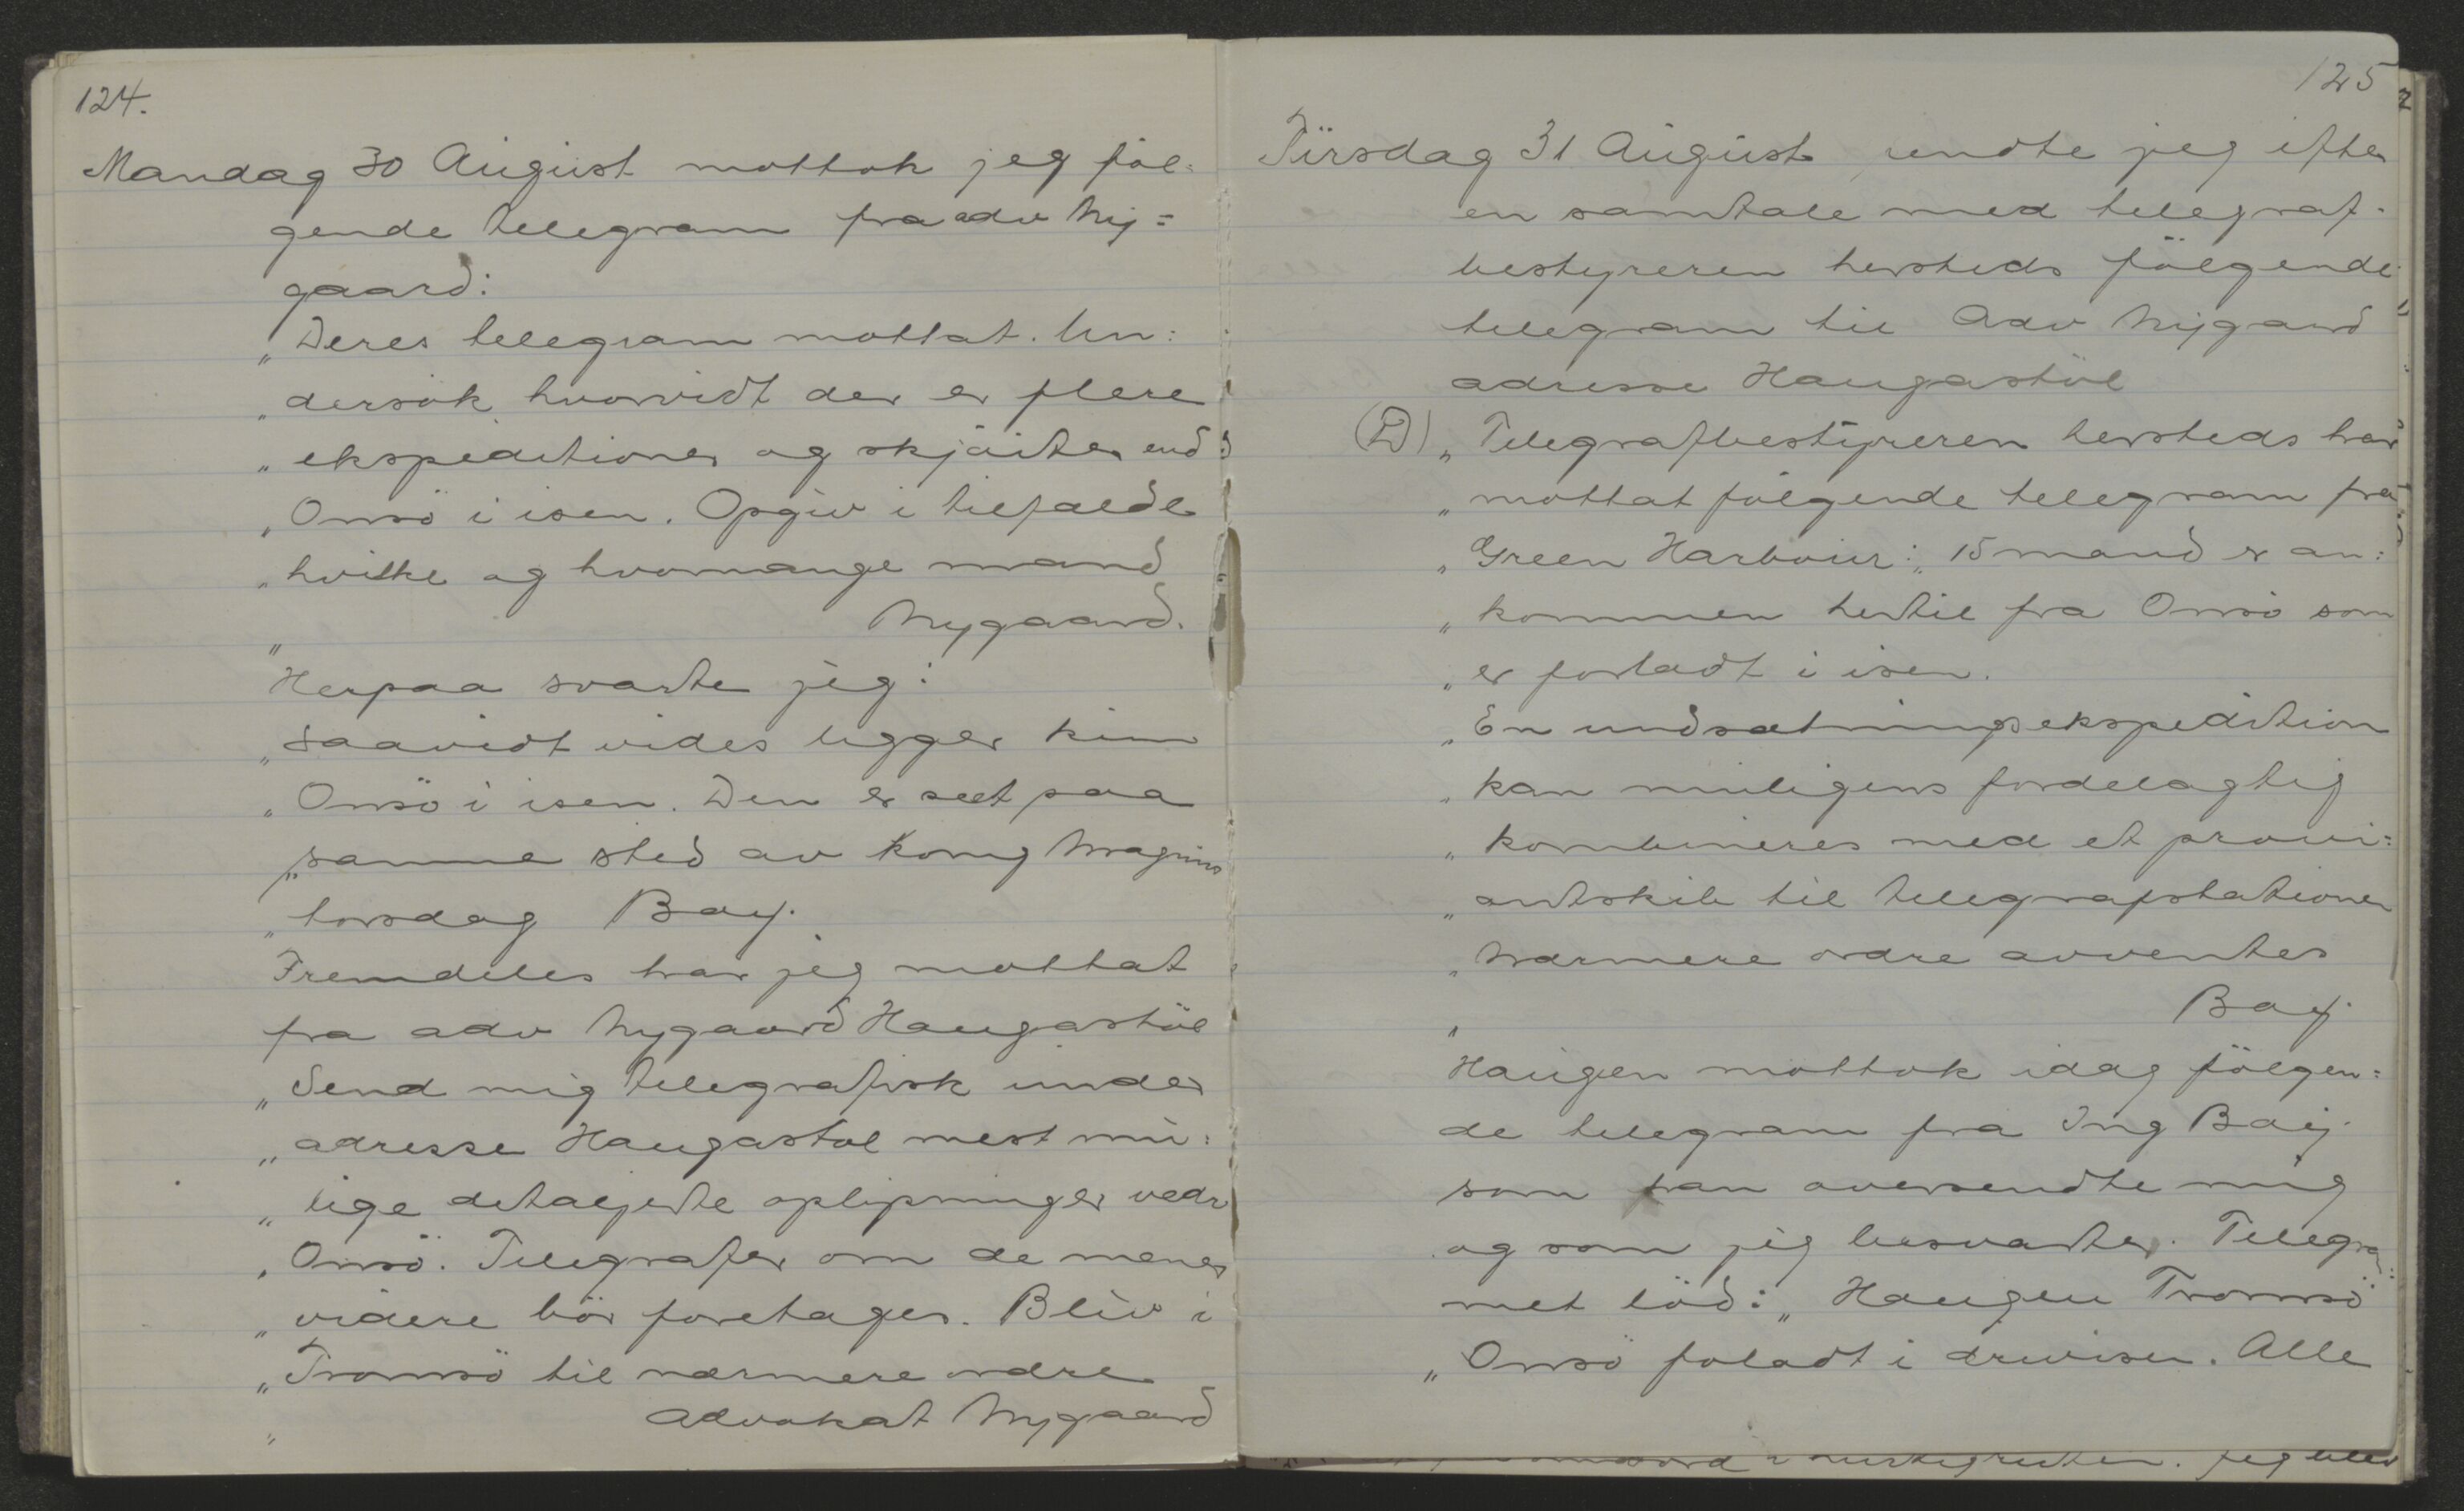 124.
Mandag 30 August mottok jeg föl=
gende telegram fra adv Ny=
gaard:
„Deres telegram mottat. Un=
„dersök hvorvidt der er flere
„ekspeditioner og skjöiter end
„Onsö i isen. Opgiv i tilfælde
„hvilke og hvormange mand
„ Nygaard.
Herpaa svarte jeg:
„Saavidt vides ligger kun
„Onsö i isen. Den er seet paa
„samme sted av Kong Magnus
„torsdag Bay.
Fremdeles har jeg mottat
fra adv Nygaard Haugastöl
„Send mig telegrafisk under
„adresse Haugastöl mest mu=
„lige detaljerte oplysninger vedr
„Onsö. Telegrafer om de mener
„videre bör foretages. Bliv i
„Tromsö til nærmere ordre
„ Advokat Nygaard
125
Tirsdag 31 August sendte jeg efter
en samtale med telegraf-
bestyreren hersteds fölgende
telegram til Adv Nygaard
adresse Haugastöl
(D) „Telegrafbestyreren hersteds har
„mottat fölgende telegram fra
„Green Harbour: „15 mand er an=
„kommen hertil fra Onsö som
„er forladt i isen.
„En undsætningsekspedition
„kan muligens fordelagtig
„kombineres med et provi=
„antskib til telegrafstationen
„Nærmere ordre avventes
„ Bay.
Haugen mottok idag fölgen=
de telegram fra Ing Bay.
som han oversendte mig
og som jeg besvarte. Telegra=
met löd: „Haugen Tromsö
„Onsö foladt i drivisen. Alle
jeg blev